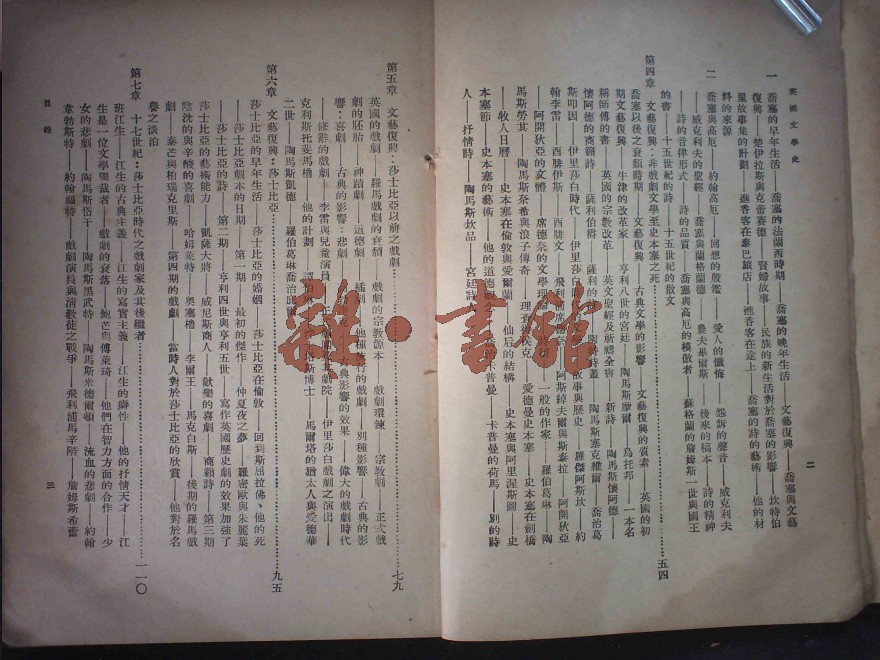 英國文學史
二
一 喬塞的早年生活 喬塞的法蘭西時期 喬塞的晚年生活 文藝復興——喬塞與文藝
復興——楚伊拉斯與克雷賽德 賢婦故事——民族的新生活對於喬塞的影響 坎特伯
里故事集的計劃——進香客在泰巴旅店——進香客在途上——喬塞的詩的藝術 他的材
料的來源
二 喬塞與高厄——約翰高厄——回想的殷鑑 愛人的懺悔——怨訴的聲音——威克利夫
——威克利夫的聖經——喬塞與蘭格蘭德——農夫畢爾斯——後來的稿本——詩的精神
——詩的音律形式——詩的品質——喬塞與高厄的模倣者——蘇格蘭的詹姆斯一世與國王
的書——十五世紀的詩——十五世紀的散文
第四章 文藝復興:非戲劇文學至史本塞之死………五四
喬塞以後之衰頹時期 文藝復興 古典文學的影響 文藝復興的質素——英國的初
期文藝復興——牛津的改革家——亨利八世的宮廷——陶馬斯摩爾——烏托邦——一本名
稱師傅的書——英國的宗教改革 英文聖經及祈禱全書 新詩——陶馬斯懷阿德——
懷阿德的商賴詩 薩利伯爵 薩利的詩 陶馬斯塞克維爾 喬治葛
斯叩因——伊里莎白時代 伊里莎白 故事與歷史——羅傑阿斯坎——約
翰李雷——西腓伊斯 西腓文——飛利 阿斯綽夫爾與斯泰拉——阿開狄亞
——阿開狄亞的文體 席德奈的文學理論 一般的作家 羅伯葛琳 陶
馬斯勞其——陶馬斯奈希與浪子傳奇 理查 愛德曼史本塞——史本塞在劍橋
——牧人日曆——史本塞在倫敦與愛爾蘭——仙后的結構——史本塞與阿里渥斯圖——史
本塞節——史本塞的藝術——他的道德 卡普曼——卡普曼的荷馬——別的詩
人——抒情詩——陶馬斯坎品——宮廷詩人
第五章 文藝復興:莎士比亞以前之戲劇………七九
英國的戲劇——羅馬戲劇的衰頹——戲劇的宗教源本——戲劇環鍊——宗教劇——正式戲
劇的胚胎 神蹟劇——道德劇——插劇——他種流行的戲劇——別種影響——古典的影
響:喜劇——古典的影響:悲劇 古典影響的效果——偉大的戲劇時代
——修辭的戲劇——李雷與兒童演員 劇院——伊里莎白戲劇之演出——
克利斯托斐馬樓 他的計劃 塔斯博士——馬爾塔的猶太人與愛德華
二世——陶馬斯凱德——羅伯葛琳喬治
第六章 文藝復興:莎士比亞………九五
莎士比亞的早年生活 莎士比亞的婚姻 莎士比亞在倫敦——回到斯屈拉佛、他的死
——莎士比亞劇本的日期——第一期——最初的傑作——仲夏夜之夢——羅密歐與朱麗葉
——莎士比亞的詩——第二期——亨利四世與亨利五世——寫作英國歷史劇的效果加强了
莎士比亞的藝術能力——凱薩大將——威尼斯商人——獻樂的喜劇——商籟詩——第三期
陰沈的與辛酸的喜劇——哈姆萊特——奧塞樓——李爾王——馬克白斯——後期的羅馬戲
劇——泰芒與柏瑞克里斯——第四期的戲劇——當時人對於莎士比亞的欣賞——他對於名
譽之淡泊
第七章 十七世紀:莎士比亞時代之戲劇家及其後繼者………一一〇
班江生——江生的古典主義——江生的寫實主義——江生的癖性——他的抒情天才——江
生是一位文學獨裁者——戲劇的衰落——鮑芒與傅萊琦——他們在智力方面的合作——少
女的悲劇——陶馬斯岱干——陶馬斯黑武特——陶馬斯米德爾頓——流血的悲劇——約翰
韋勃斯特——約翰福特——戲劇演員與清教徒之戰爭——飛利浦馬辛階——詹姆斯希蕾
目錄
三
雜·書館